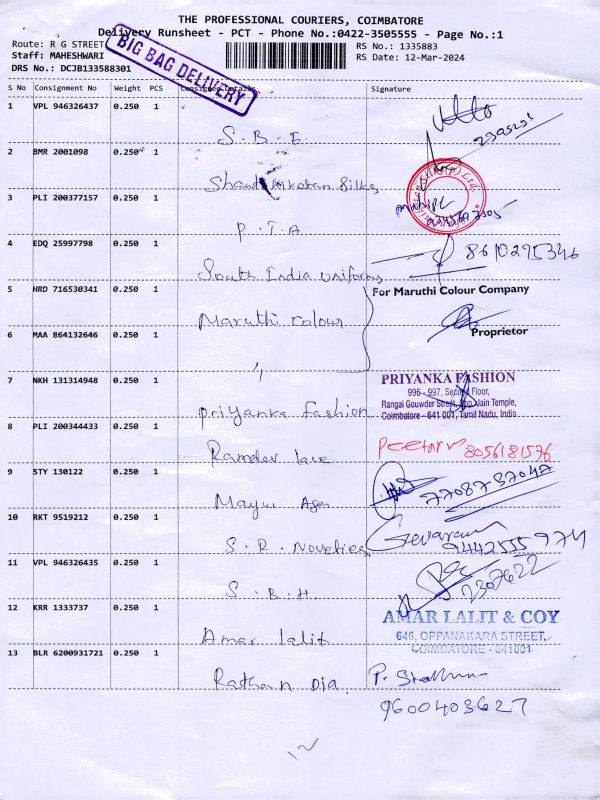 THE PROFESSIONAL COURIERS, COIMBATORE
Delivery Runsheet - PCT - Phone No.:0422-3505555 - Page No.:1
Route: R G STREET
RS No.: 1335883
Staff: MAHESHWARI
RS Date: 12-Mar-2024
DRS No.: DCJB133588301
BIG BAG DELIVERY
S No Consignment No Weight PCS Consignee Details Signature
1 VPL 946326437 0.250 1
S. B. E
2395231
2 BMR 2001098 0.250 1
Silks
3 PLI 200377157 0.250 1
P. T. A
4 EDQ 25997798 0.250 1
8610295346
South India Uniforms
5 HRD 716530341 0.250 1
For Maruthi Colour Company
Maruthi Colour
Proprietor
6 MAA 864132646 0.250 1
"
7 NKH 131314948 0.250 1
PRIYANKA FASHION
996 - 997, Second Floor,
Rangai Gouwder Street, Opp. Jain Temple,
Coimbatore - 641 001, Tamil Nadu, India
Priyanka Fashion
8 PLI 200344433 0.250 1
8056181576
Ramdev lace
9 STY 130122 0.250 1
7708737047
Mayur Agen
10 RKT 9519212 0.250 1
Gevaram
9442555974
S. R. Novelties
11 VPL 946326435 0.250 1
2307622
S. B. H.
12 KRR 1333737 0.250 1
AMAR LALIT & COY
646, OPPANAKARA STREET,
COIMBATORE - 641001
Amar lalit
13 BLR 6200931721 0.250 1
Rathan Dia.
9600403627
12